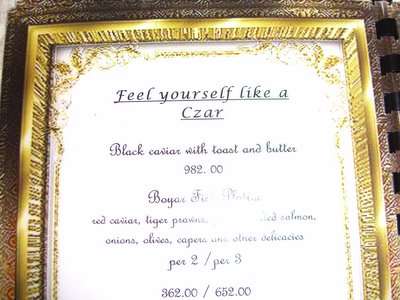 Feel yourself like a
Czar
Black caviar with toast and butter
982. 00
Boyar Fish Platter
red caviar, tiger prawns, salmon,
onions, olives, capers and other delicacies
per 2 / per 3
362.00 / 652.00